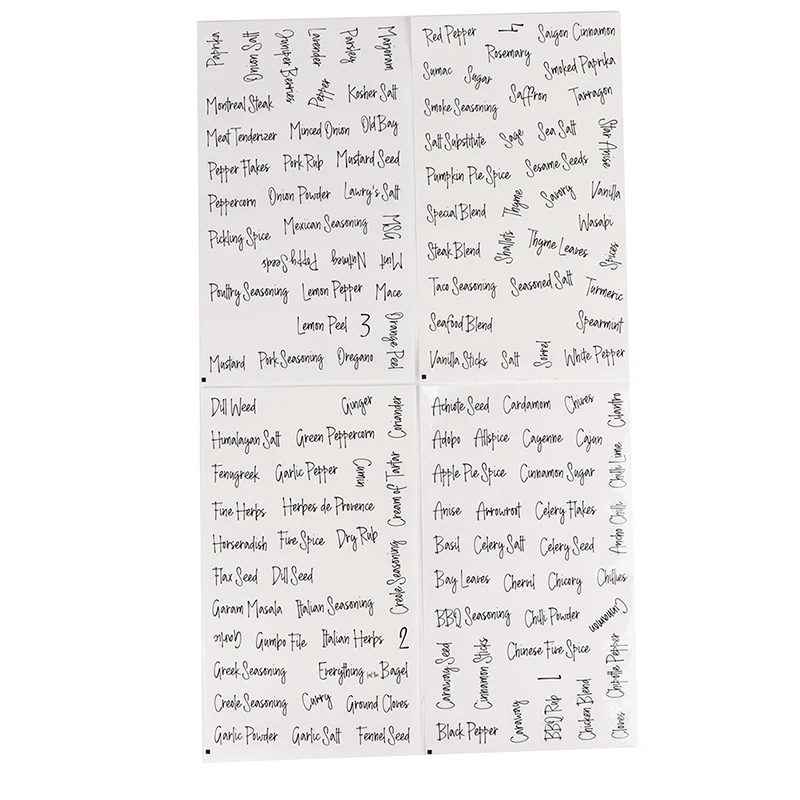 Paprika Onion Salt Juniper Berries Lavender Parsley Marjoram
Montreal Steak Pepper Kosher Salt
Meat Tenderizer Minced Onion Old Bay
Pepper Flakes Pork Rub Mustard Seed
Peppercorn Onion Powder Lawry's Salt
Pickling Spice Mexican Seasoning MSG
Poppy Seeds Nutmeg Mint
Poultry Seasoning Lemon Pepper Mace
Lemon Peel 3 Orange Peel
Mustard Pork Seasoning Oregano
Red Pepper 4 Saigon Cinnamon
Rosemary
Sumac Sugar Smoked Paprika
Smoke Seasoning Saffron Tarragon
Salt Substitute Sage Sea Salt Star Anise
Pumpkin Pie Spice Sesame Seeds
Special Blend Thyme Savory Vanilla
Wasabi
Steak Blend Shallots Thyme Leaves Spices
Taco Seasoning Seasoned Salt Turmeric
Seafood Blend Spearmint
Vanilla Sticks Salt Sorrel White Pepper
Dill Weed Ginger Coriander
Himalayan Salt Green Peppercorn
Fenugreek Garlic Pepper Cumin Cream of Tartar
Fine Herbs Herbes de Provence
Horseradish Five Spice Dry Rub
Flax Seed Dill Seed Creole Seasoning
Garam Masala Italian Seasoning
Garlic Gumbo File Italian Herbs 2
Greek Seasoning Everything but the Bagel
Creole Seasoning Curry Ground Cloves
Garlic Powder Garlic Salt Fennel Seed
Achiote Seed Cardamom Chives Cilantro
Adobo Allspice Cayenne Cajun
Apple Pie Spice Cinnamon Sugar Chili Lime
Anise Arrowroot Celery Flakes
Basil Celery Salt Celery Seed Ancho Chili
Bay Leaves Chervil Chicory Chillies
BBQ Seasoning Chili Powder Cinnamon
Caraway Seed Cinnamon Sticks Chinese Five Spice Chipotle Pepper
Black Pepper Caraway BBQ Rub 1 Chicken Blend Cloves